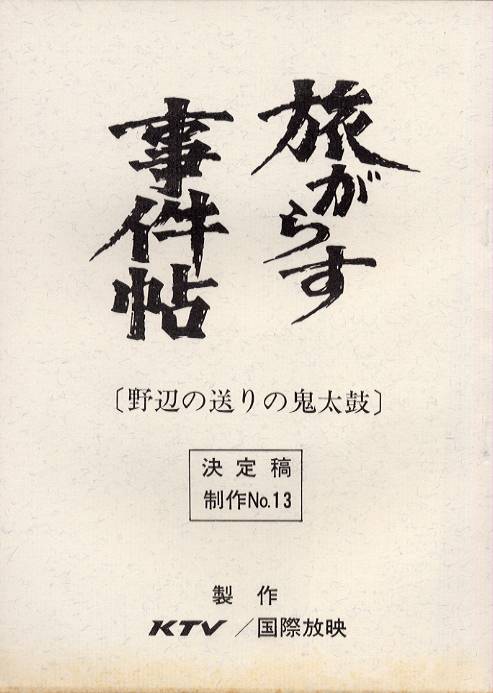 旅がらす
事件帖
〔野辺の送りの鬼太鼓〕
決定稿
制作No.13
製作
KTV／国際放映